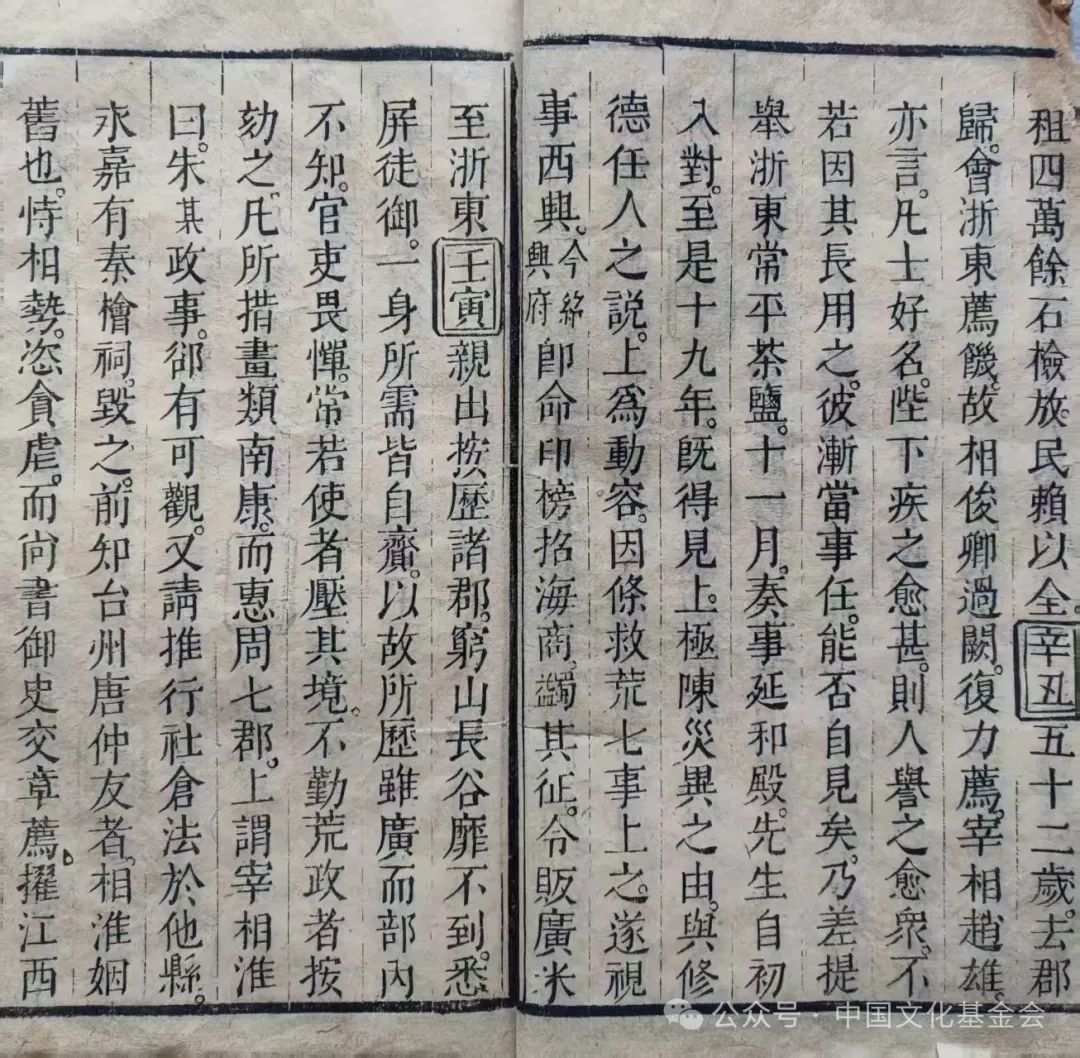 租四萬餘石檢放民賴以全。辛丑五十二歲。去郡
歸。會浙東薦饑。故相俊卿過闕。復力薦。宰相趙雄
亦言。凡士好名。陛下疾之愈甚。則人譽之愈衆。不
若因其長用之。彼漸當事任。能否自見矣。乃差提
舉浙東常平茶鹽。十一月。奏事延和殿。先生自初
入對。至是十九年。旣得見上。極陳災異之由。與修
德任人之說。上爲動容。因條救荒七事上之。遂視
事西興。今紹興府卽命印榜招海商。蠲其征。令販廣米
至浙東壬寅親出按歷諸郡。窮山長谷靡不到。悉
屏徒御。一身所需皆自齎。以故所歷雖廣而部內
不知。官吏畏憚。常若使者壓其境。不勤荒政者按
劾之。凡所措畫類南康。而惠周七郡。上謂宰相淮
曰。朱某政事。郤有可觀。又請推行社倉法於他縣。
永嘉有秦檜祠。毀之。前知台州唐仲友者。相淮姻
舊也。恃相勢。恣貪虐。而尚書御史交章薦擢江西
公众号·中国文化基金会